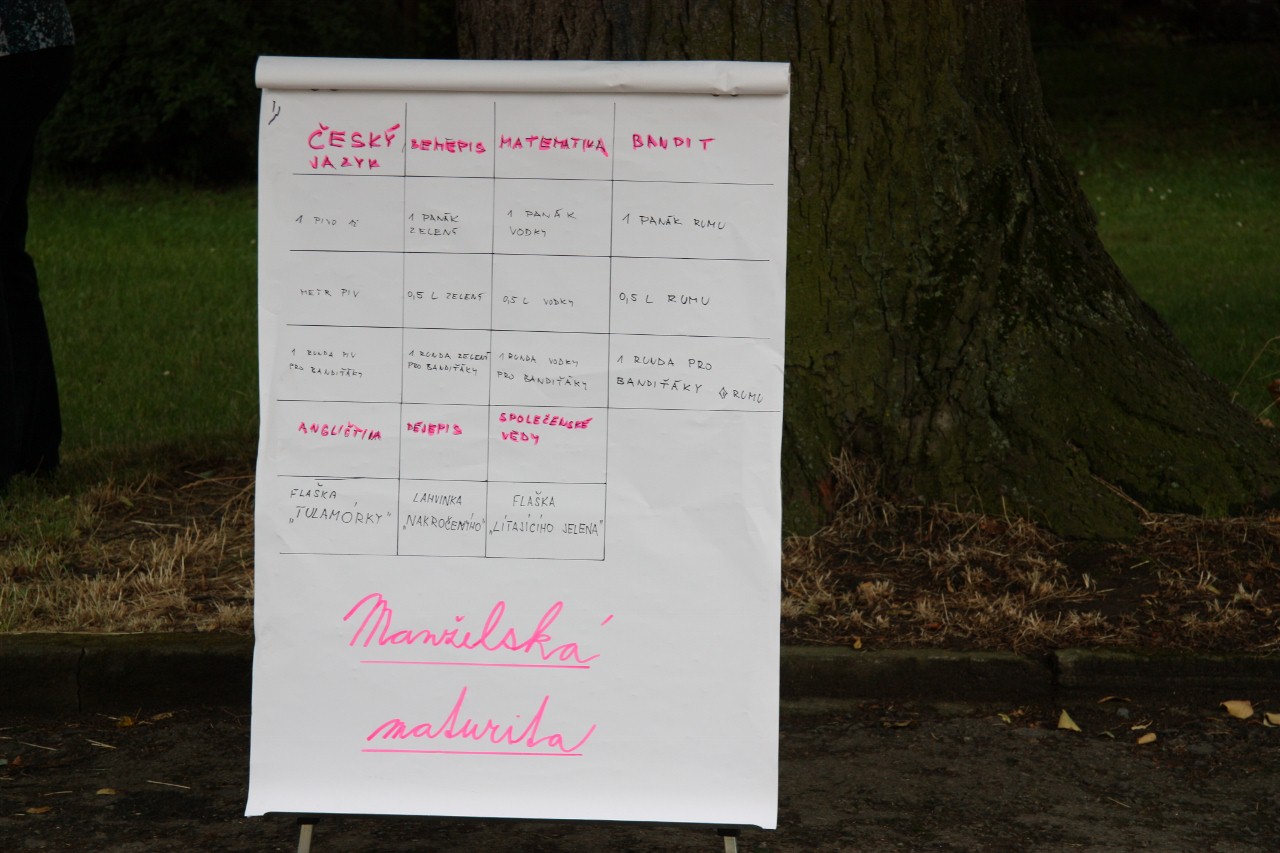 ČESKÝ JAZYK ZEMĚPIS MATEMATIKA BANDIT
1 PIVO 1 PANÁK ZELENÝ 1 PANÁK VODKY 1 PANÁK RUMU
METR PIV 0,5 L ZELENÝ 0,5 L VODKY 0,5 L RUMU
1 RUNDA PIV PRO BANDIŤÁKY 1 RUNDA ZELENÝ PRO BANDIŤÁKY 1 RUNDA VODKY PRO BANDIŤÁKY 1 RUNDA PRO BANDIŤÁKY RUMU
ANGLIČTINA DĚJEPIS SPOLEČENSKÉ VĚDY
FLAŠKA "TULAMÓRKY" LAHVINKA "NAKROČENÝHO" FLAŠKA "LÍTAJÍCÍHO JELENA"
Manželská
maturita